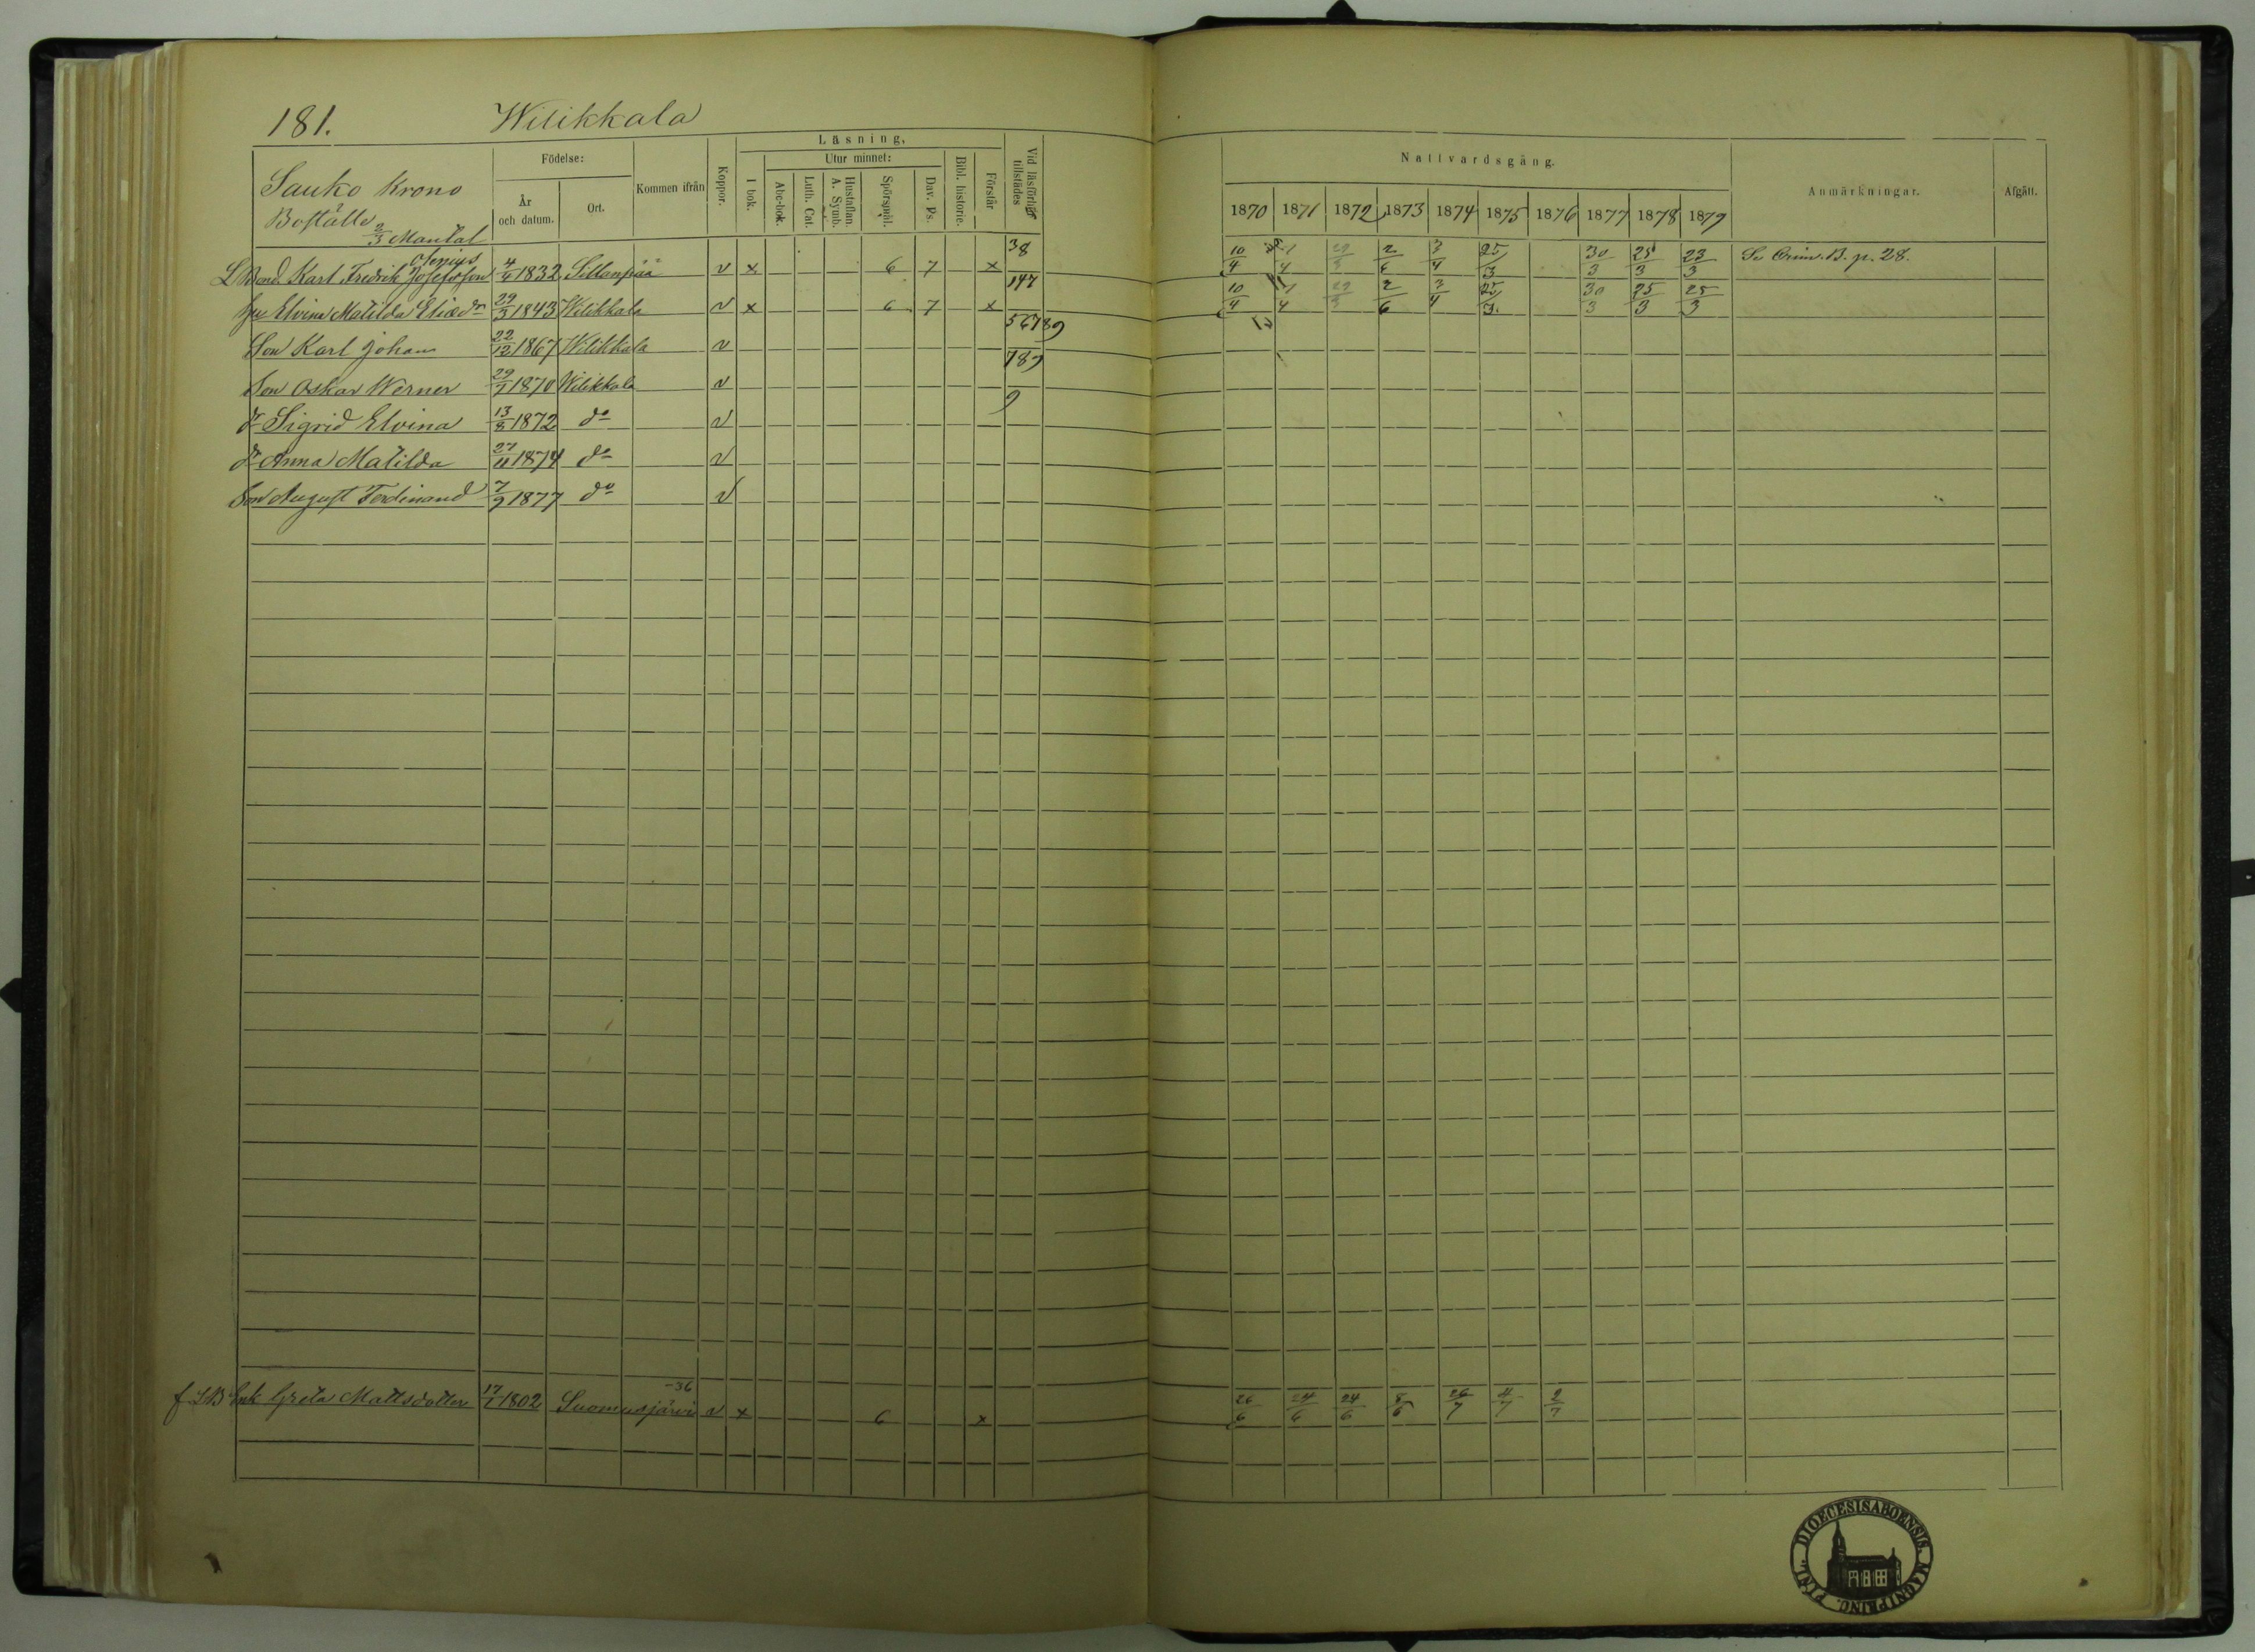 181.
Wilikkala
Sauko Krono
Boställe 2/3 Mantal
Födelse:
År och datum.
Ort.
Kommen ifrån
Koppor.
Läsning,
I bok.
Utur minnet:
Abc-bok.
Luth. Cat.
Hustaflan. A. Symb.
Spörsmål.
Dav. Ps.
Bibl. historie.
Förstår
Vid läsförhör tillstädes
Nattvardsgång.
1870 1871 1872 1873 1874 1875 1876 1877 1878 1879
Anmärkningar.
Afgått.
L Bond. Karl Fredrik Josefsson 1832 Sillanpää v x 6 7 x 38 10/4 2/6 3/4 25/3 30/3 25/3 23/3 Se B. p. 28.
Hu Elvina Matilda Eliædr 29/3 1843 Wilikkala v x 6 7 x 147 10/4 29/3 2/6 3/4 25/3 30/3 25/3 25/3
Son Karl Johan 22/12 1867 Wilikkala v 56789
Son Oskar Werner 29/7 1870 Wilikkala v 789
dr Sigrid Elvina 13/8 1872 do v 9
dr Anna Matilda 27/11 1874 do v
Son August Ferdinand 7/9 1877 do v
f LB Enk Greta Mattsdotter 17/7 1802 Suomusjärvi -36 v x 6 x 26/6 24/6 24/6 8/6 26/7 4/7 2/7
DIOECESIS ABOENSIS. MAGNI PRINC. FINL.